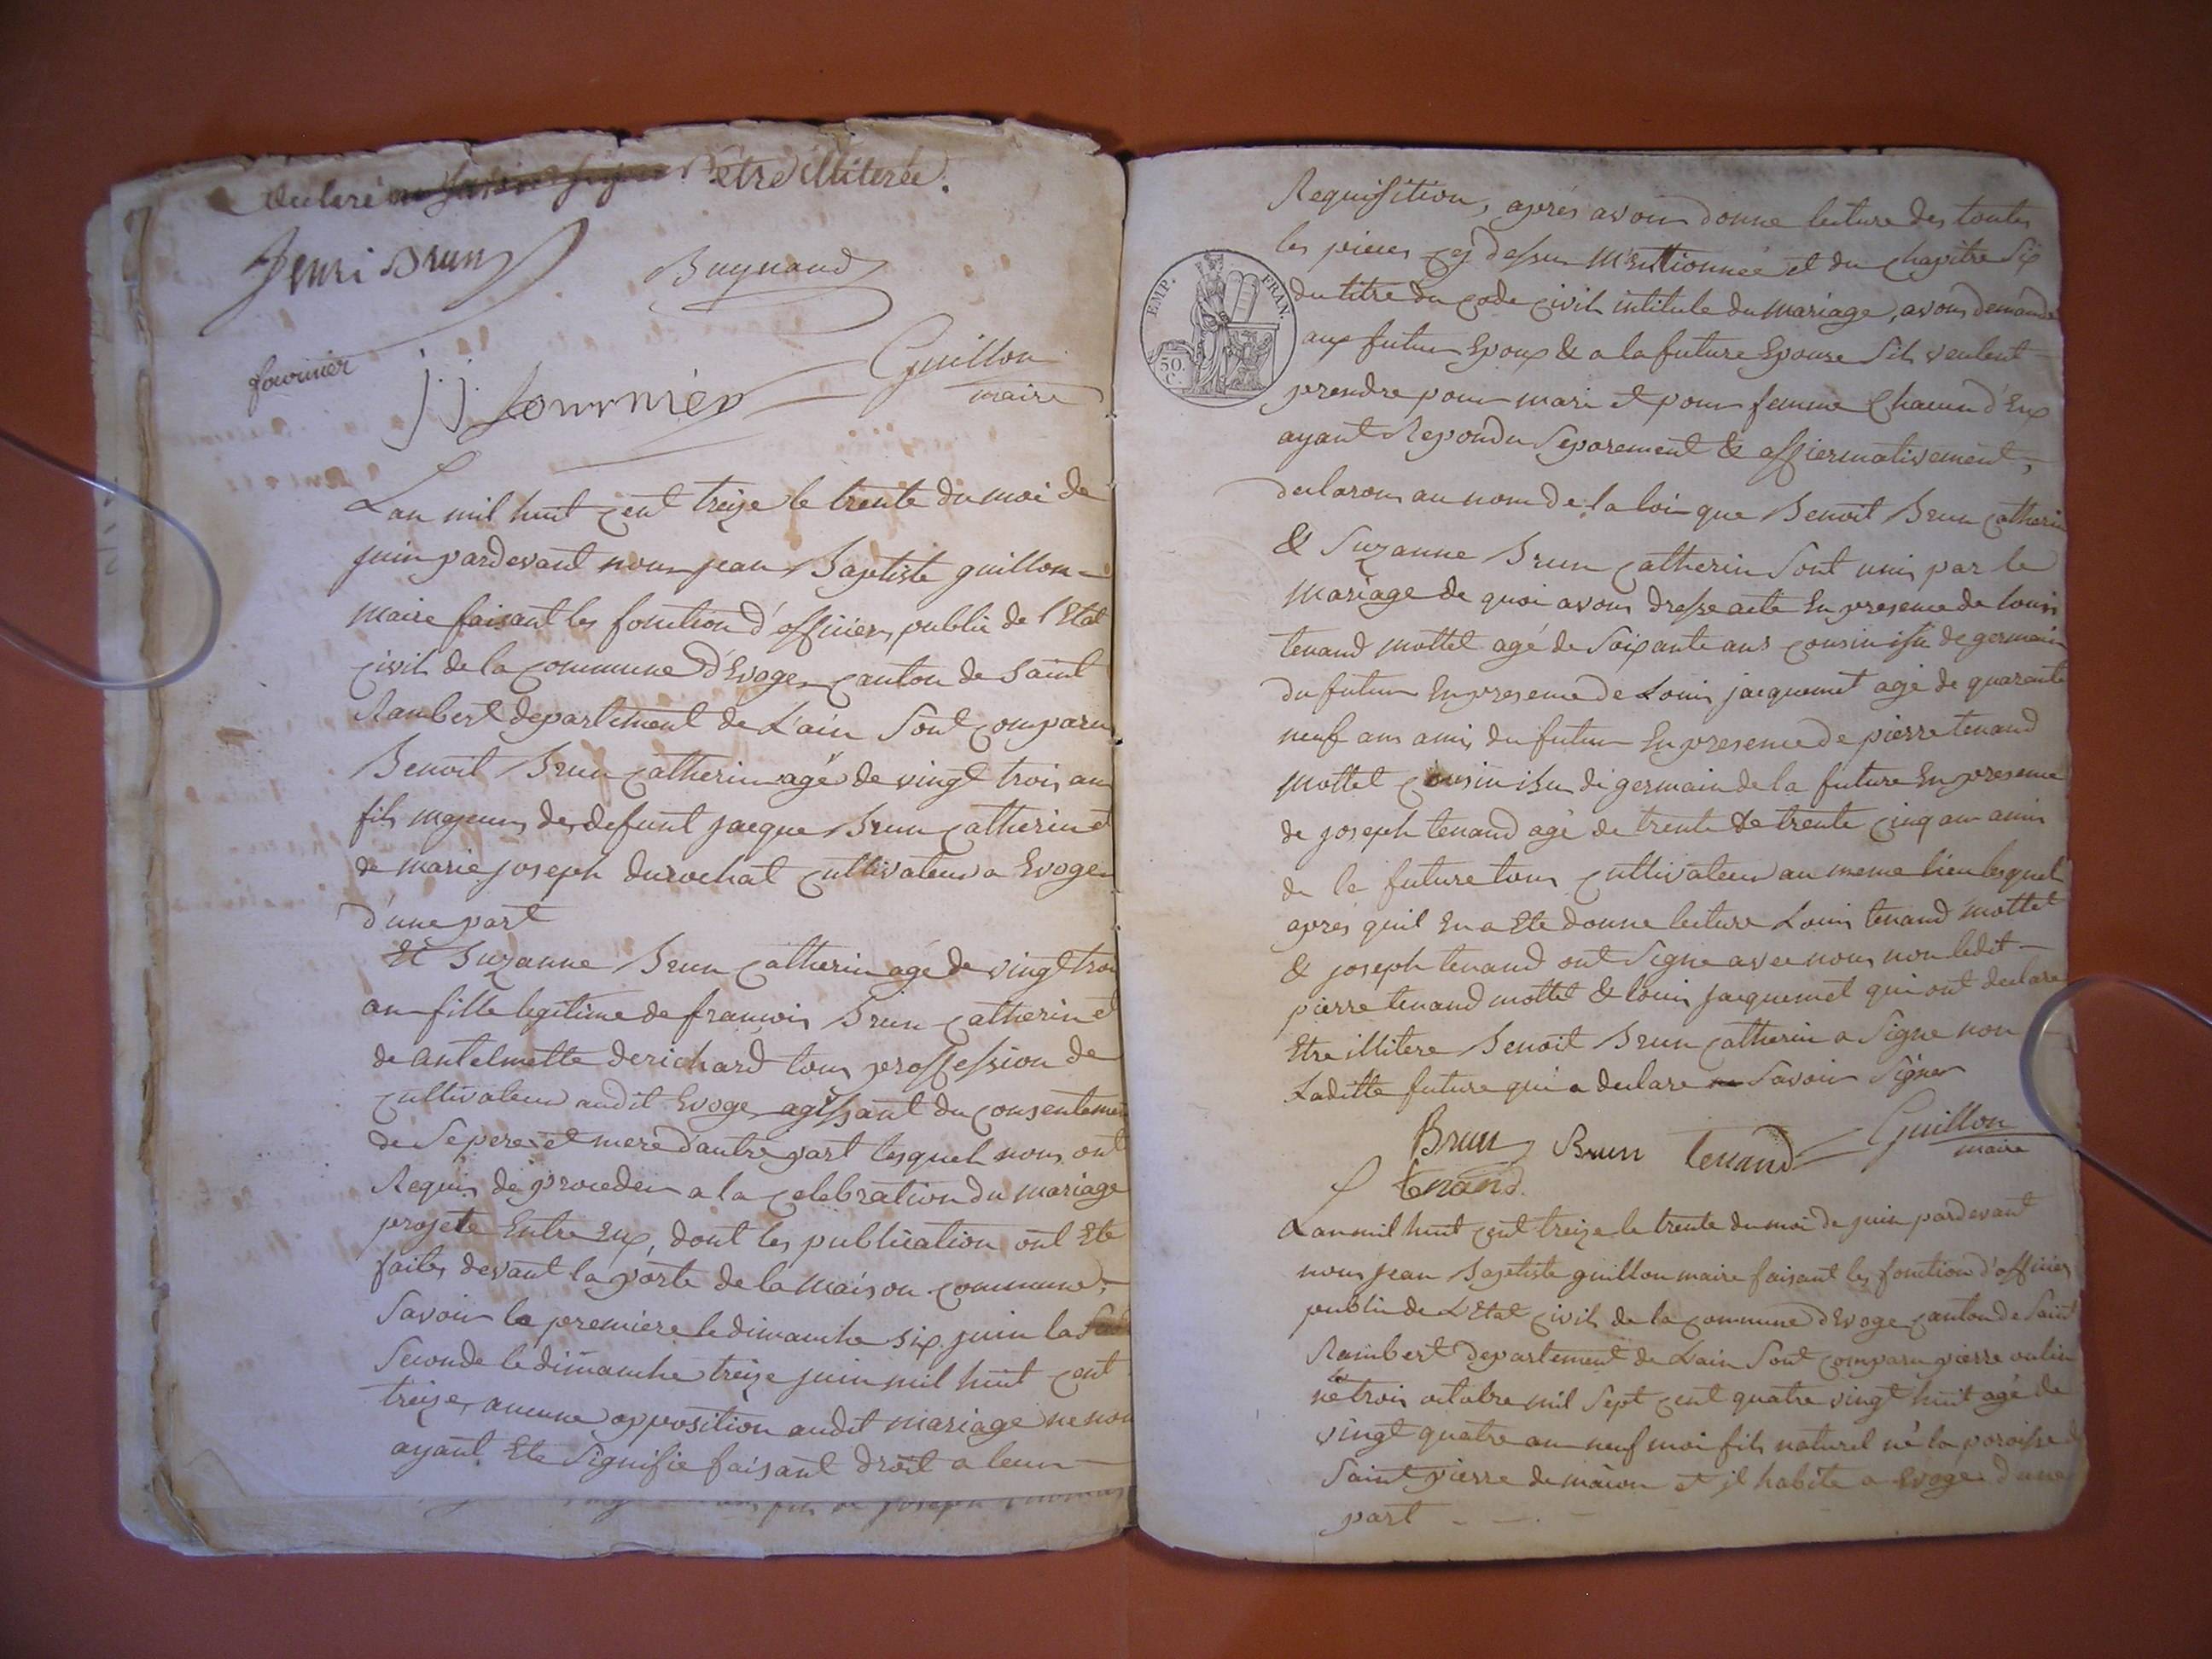 declaré ne savoir signer d'etre illiterée.
henri Brun Buynand
fournier j.j. fournier Guillon
maire
L'an mil huit cent treize le trente du moi de
juin pardevant nous jean Baptiste guillon
maire faisant les fonction d'officier public de l'Etat
civil de la commune d'Evoges canton de saint
Rambert departement de L'ain sont comparu
Benoit Brun Catherin agé de vingt trois an
fils majeur des defunt jacque Brun Catherin et
de marie joseph durochat cultivateur a Evoges
d'une part
Et Suzanne Brun Catherin agé de vingt trois
an fille legitime de francois Brun Catherin et
de antelmette derichard tous proffession de
cultivateur audit Evoge agissant du consentement
de se pere et mere d'autre part lesquel nous ont
Requis de proceder a la celebration du mariage
projete Entre Eux, dont les publication ont Ete
faites devant la porte de la maison commune,
Savoir la premiere le dimanche six juin la
Seconde le dimanche treize juin mil huit cent
treize, aucune opposition audit mariage ne nou
ayant Ete Signifie faisant droit a leur
fils de joseph
Requisition, aprés avoir donne lecture des toutes
les pieces cy dessu mentionneé et du chapitre Six
du titre du code civil intitule du mariage, avons demande
EMP. FRAN.
50.
C.
aux futur Epoux & a la future Epouse S'ils veulent
prendre pour mari et pour femme Chacun d'Eux
ayant Repondu Separement & affiermativement,
declarons au nom de la loi que Benoit Brun Catherin
& Suzanne Brun Catherin Sont unis par le
mariage de quoi avons dresse acte En presence de louis
tenand mottet agé de Soixante ans cousin issu de germain
du futur En presence de Louis jacquemet agé de quarante
neuf ans amis du futur En presence de pierre tenand
mottet cousin issu de germain de la future En presence
de joseph tenand agé de trente de trente cinq an amis
de la future tous cultivateur au meme lieu lesquel
aprés quil En a Ete donne lecture Louis tenand mottet
& joseph tenand ont Signe avec nous non ledit
pierre tenand mottet & louis jacquemet qui ont declare
Etre illitere Benoit Brun Catherin a Signe non
Laditte future qui a declare ne Savoir Signer
Brun Brun tenand Guillon
maire
tenand.
L'an mil huit cent treize le trente du moi de juin pardevant
nous jean Baptiste guillon maire faisant les fonction d'officier
public de L'Etat civil de la commune d'Evoge canton de Saint
Rambert departement de L'ain Sont comparu pierre
né le trois octobre mil Sept cent quatre vingt huit agé de
vingt quatre an neuf moi fils naturel né la paroisse de
Saint pierre de macon et il habite a Evoges d'une
part